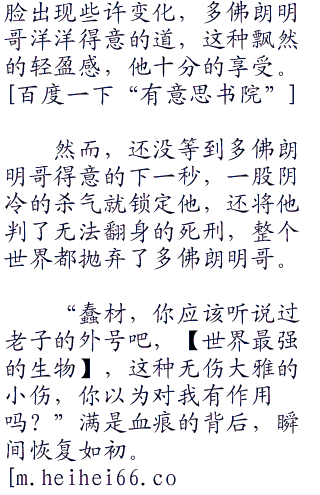 脸出现些许变化，多佛朗明
哥洋洋得意的道，这种飘然
的轻盈感，他十分的享受。
[百度一下“有意思书院”]
然而，还没等到多佛朗
明哥得意的下一秒，一股阴
冷的杀气就锁定他，还将他
判了无法翻身的死刑，整个
世界都抛弃了多佛朗明哥。
“蠢材，你应该听说过
老子的外号吧，【世界最强
的生物】，这种无伤大雅的
小伤，你以为对我有作用
吗？”满是血痕的背后，瞬
间恢复如初。
[m.heihei66.co